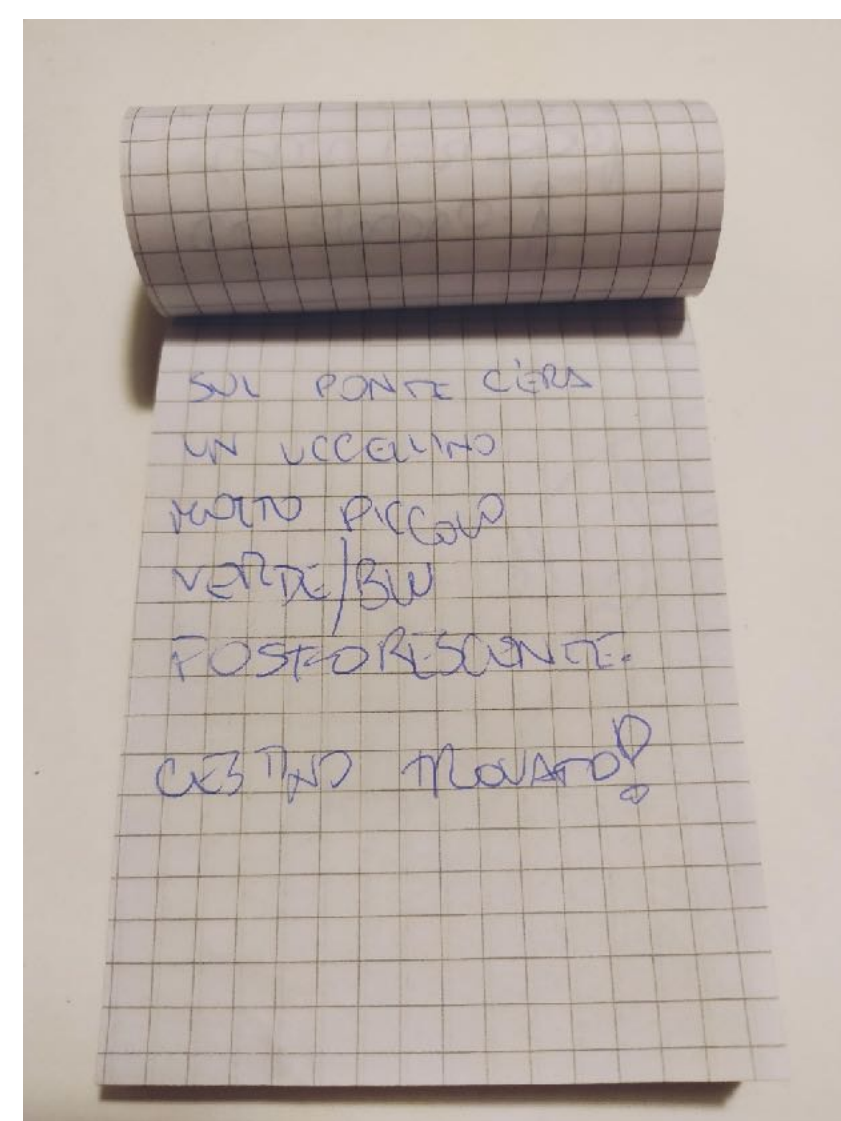 SUL PONTE C'ERA
UN UCCELLINO
MOLTO PICCOLO
VERDE/BLU
FOSFORESCENTE.
CESTINO TROVATO!